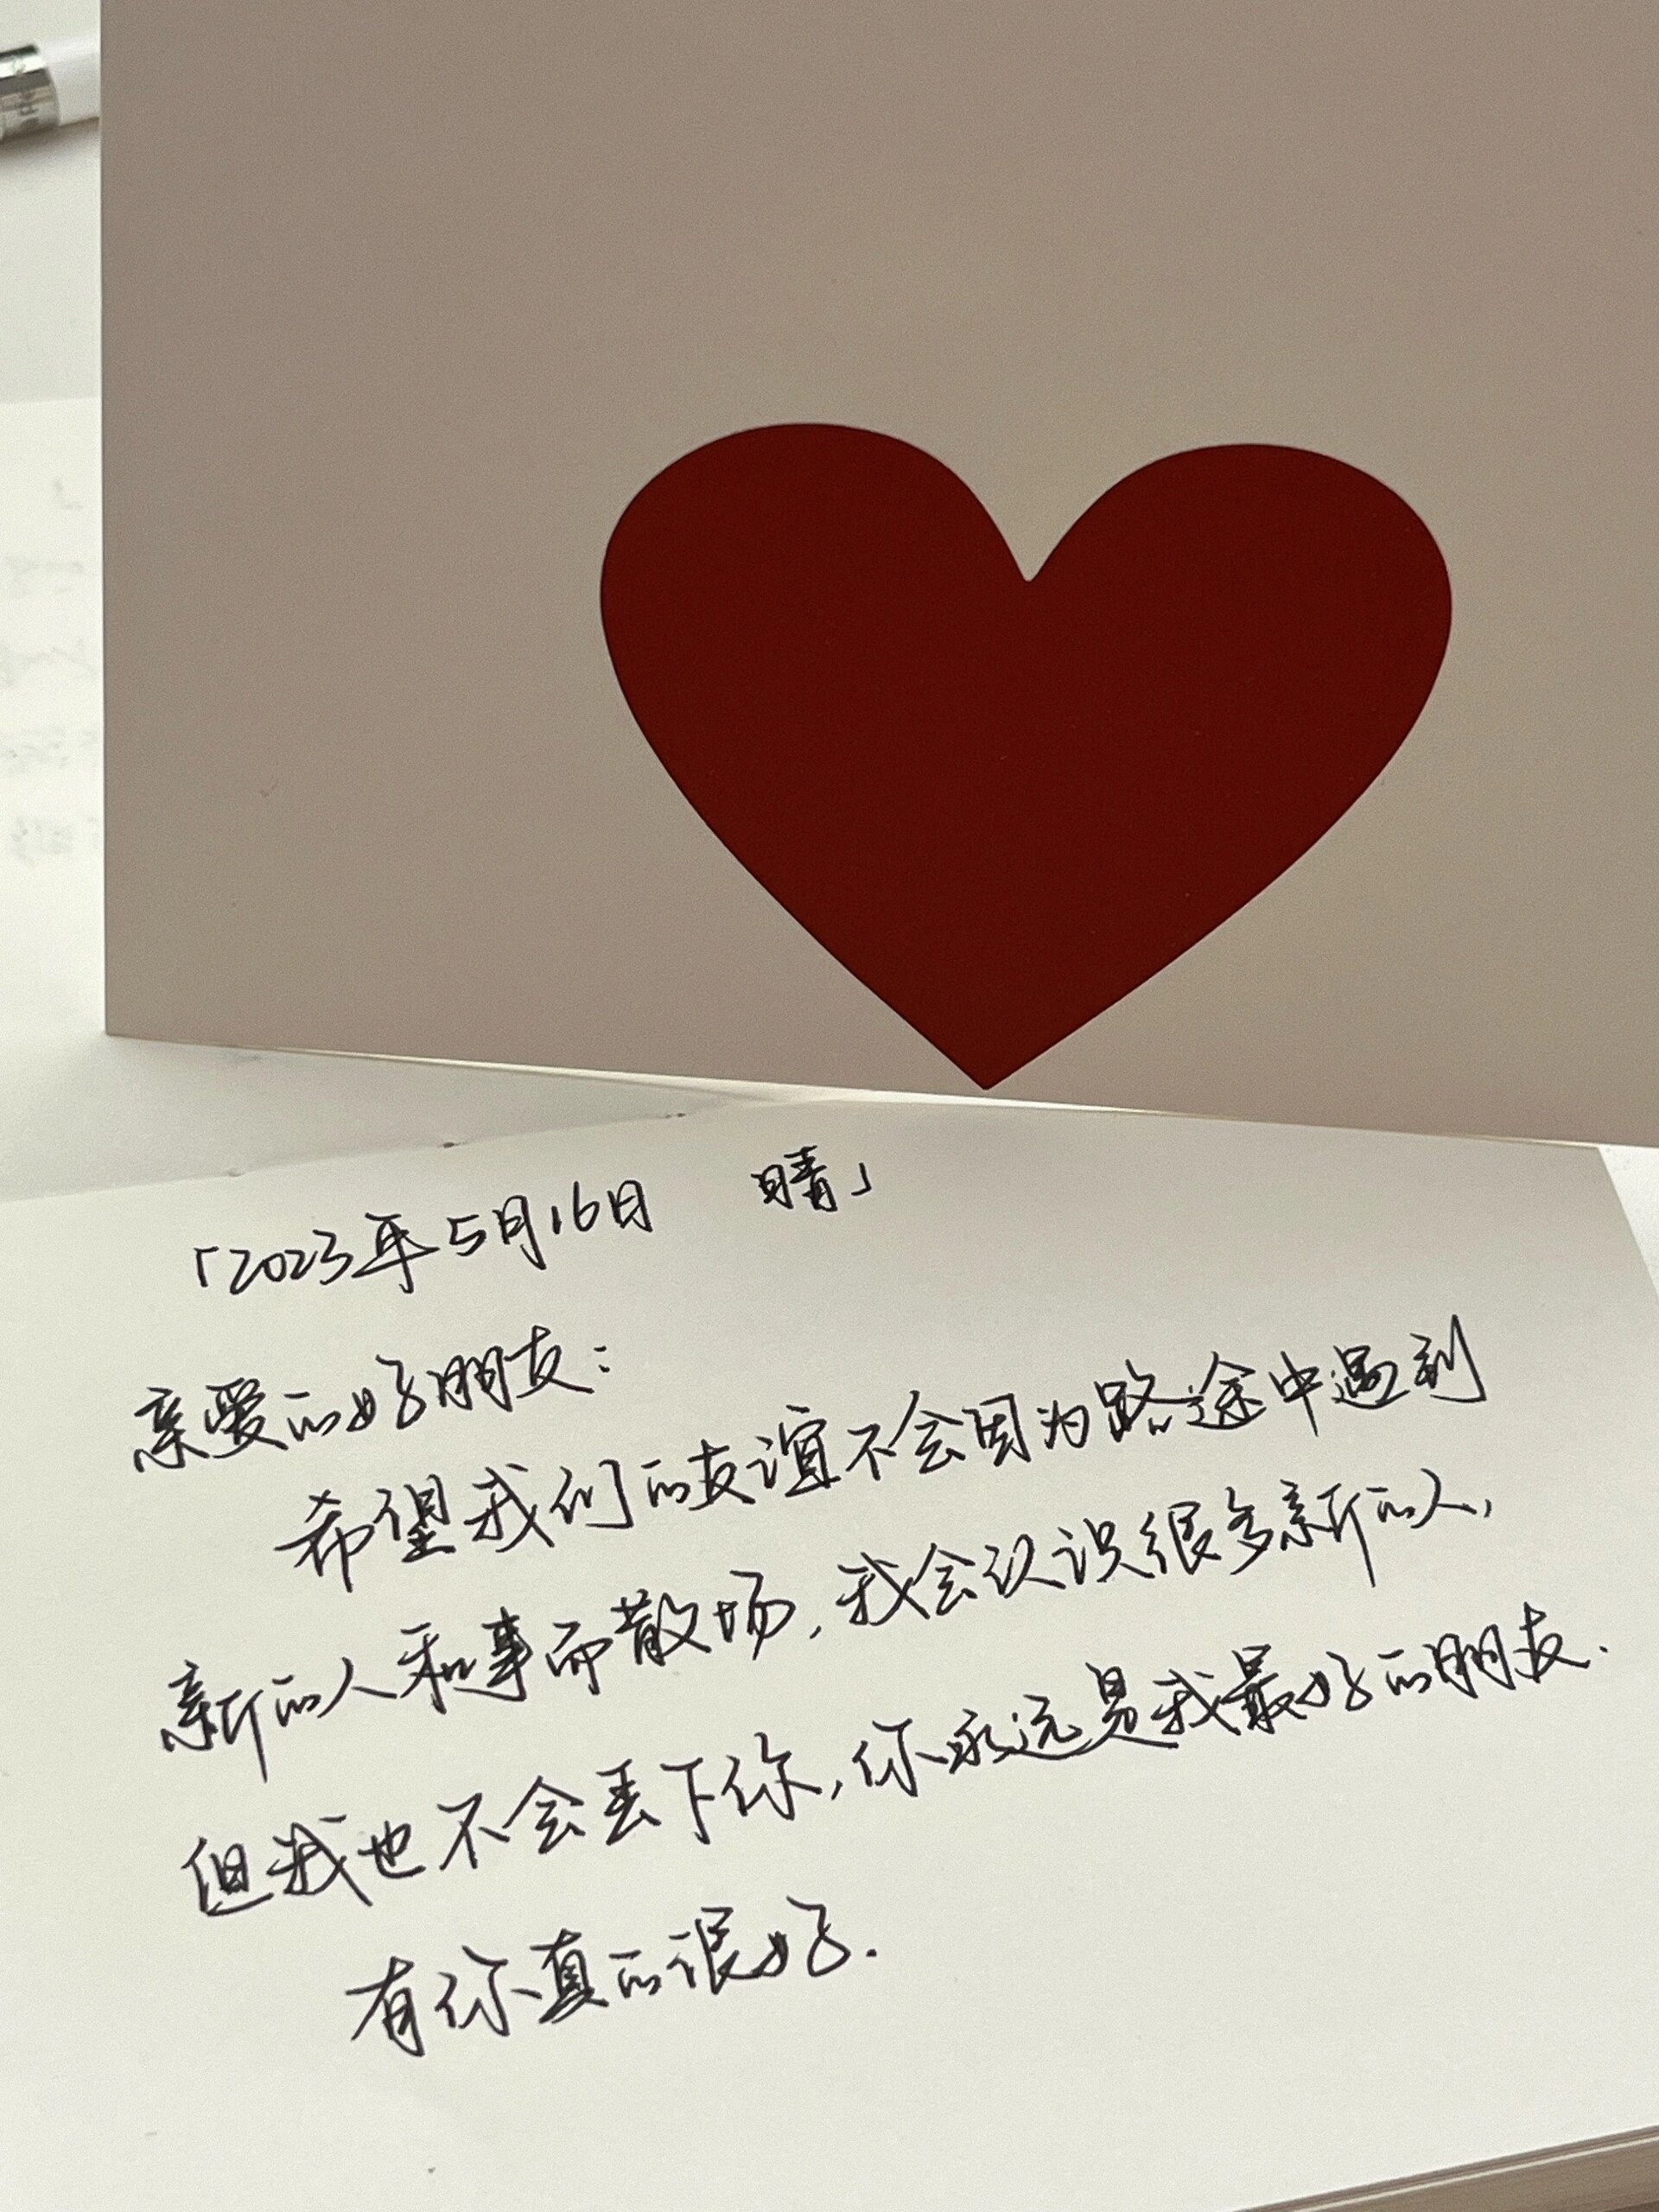 「2023年5月16日 晴」
亲爱的好朋友：
希望我们的友谊不会因为路途中遇到
新的人和事而散场，我会认识很多新的人，
但我也不会丢下你，你永远是我最好的朋友.
有你真的很好.